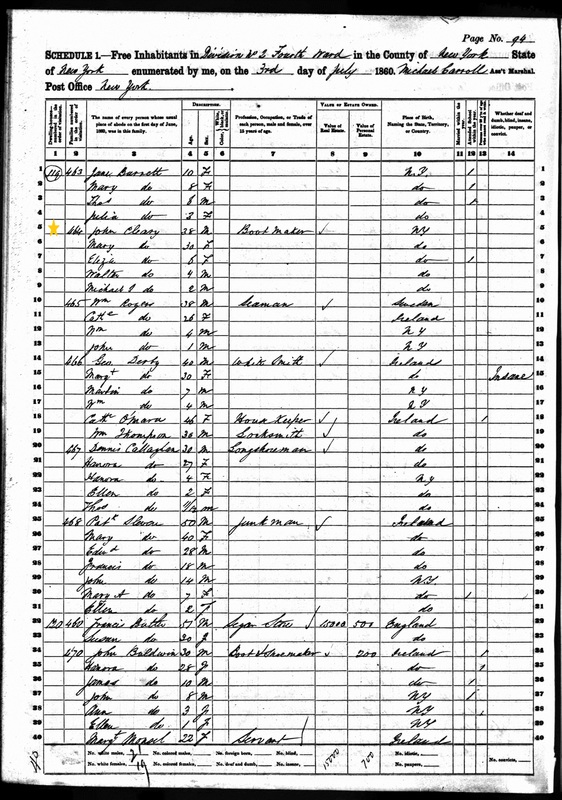 Page No. 94
SCHEDULE 1.—Free Inhabitants in Division No 2 Fourth Ward in the County of New York State
of New York enumerated by me, on the 3rd day of July 1860. Michael Carroll Ass't Marshal.
Post Office New York.
DESCRIPTION. VALUE OF ESTATE OWNED.
The name of every person whose usual place of abode on the first day of June, 1860, was in this family.
Age. Sex.
Profession, Occupation, or Trade of each person, male and female, over 15 years of age.
Value of Real Estate. Value of Personal Estate.
Place of Birth, Naming the State, Territory, or Country.
Whether deaf and dumb, blind, insane, idiotic, pauper, or convict.
1 2 3 4 5 6 7 8 9 10 11 12 13 14
1 119 463 Jane Barrett 10 F N.Y. 1 1
2 Mary do 8 F do 1 2
3 Thos do 6 M do 1 3
4 Julia do 3 F do 4
5 464 John Cleary 38 M Bootmaker NY 5
6 Mary do 30 F do 6
7 Eliza do 6 F do 1 7
8 Walter do 4 M do 8
9 Michael J do 2 M do 9
10 465 Wm Rogers 38 M Seaman Sweden 10
11 Cathe do 26 F Ireland 11
12 Wm do 4 M N.Y 12
13 John do 1 M N.Y 13
14 466 Geo. Derby 40 M White Smith Ireland 14
15 Margt do 30 F do Insane 15
16 Martin do 7 M N.Y 16
17 Wm do 4 M N.Y 17
18 Cathe O'Mara 46 F House Keeper Ireland 1 18
19 Wm Thompson 36 M Locksmith do 19
20 467 Dennis Callaghan 30 M Longshoreman do 20
21 Hanora do 27 F do 21
22 Hanora do 4 F N.Y 22
23 Ellen do 2 F do 23
24 Thos do m do 24
25 468 Patk Slevan 50 M Junkman Ireland 25
26 Mary do 40 F do 26
27 Edwd do 28 M do 27
28 Francis do 18 M do 28
29 John do 14 M N.Y. 29
30 Mary A do 7 F do 1 30
31 Ellen do 2 F do 31
32 120 469 Francis Butler 57 M Segar Store 15000 500 England
33 Susan do 30 F do
34 470 John Baldwin 30 M Boot & Shoemaker 200 Ireland 1 34
35 Hanora do 28 F do 1 35
36 James do 10 M do 1 36
37 John do 8 M N.Y 1 37
38 Ann do 3 F N.Y 38
39 Ellen do 1 F N.Y 39
40 Margt 22 F Servant Ireland 40
No. white males, 21 No. colored males, No. foreign born, No. blind, 15000 700 No. idiotic, No. convicts,
No. white females, 19 No. colored females, No. deaf and dumb, No. insane, No. paupers,